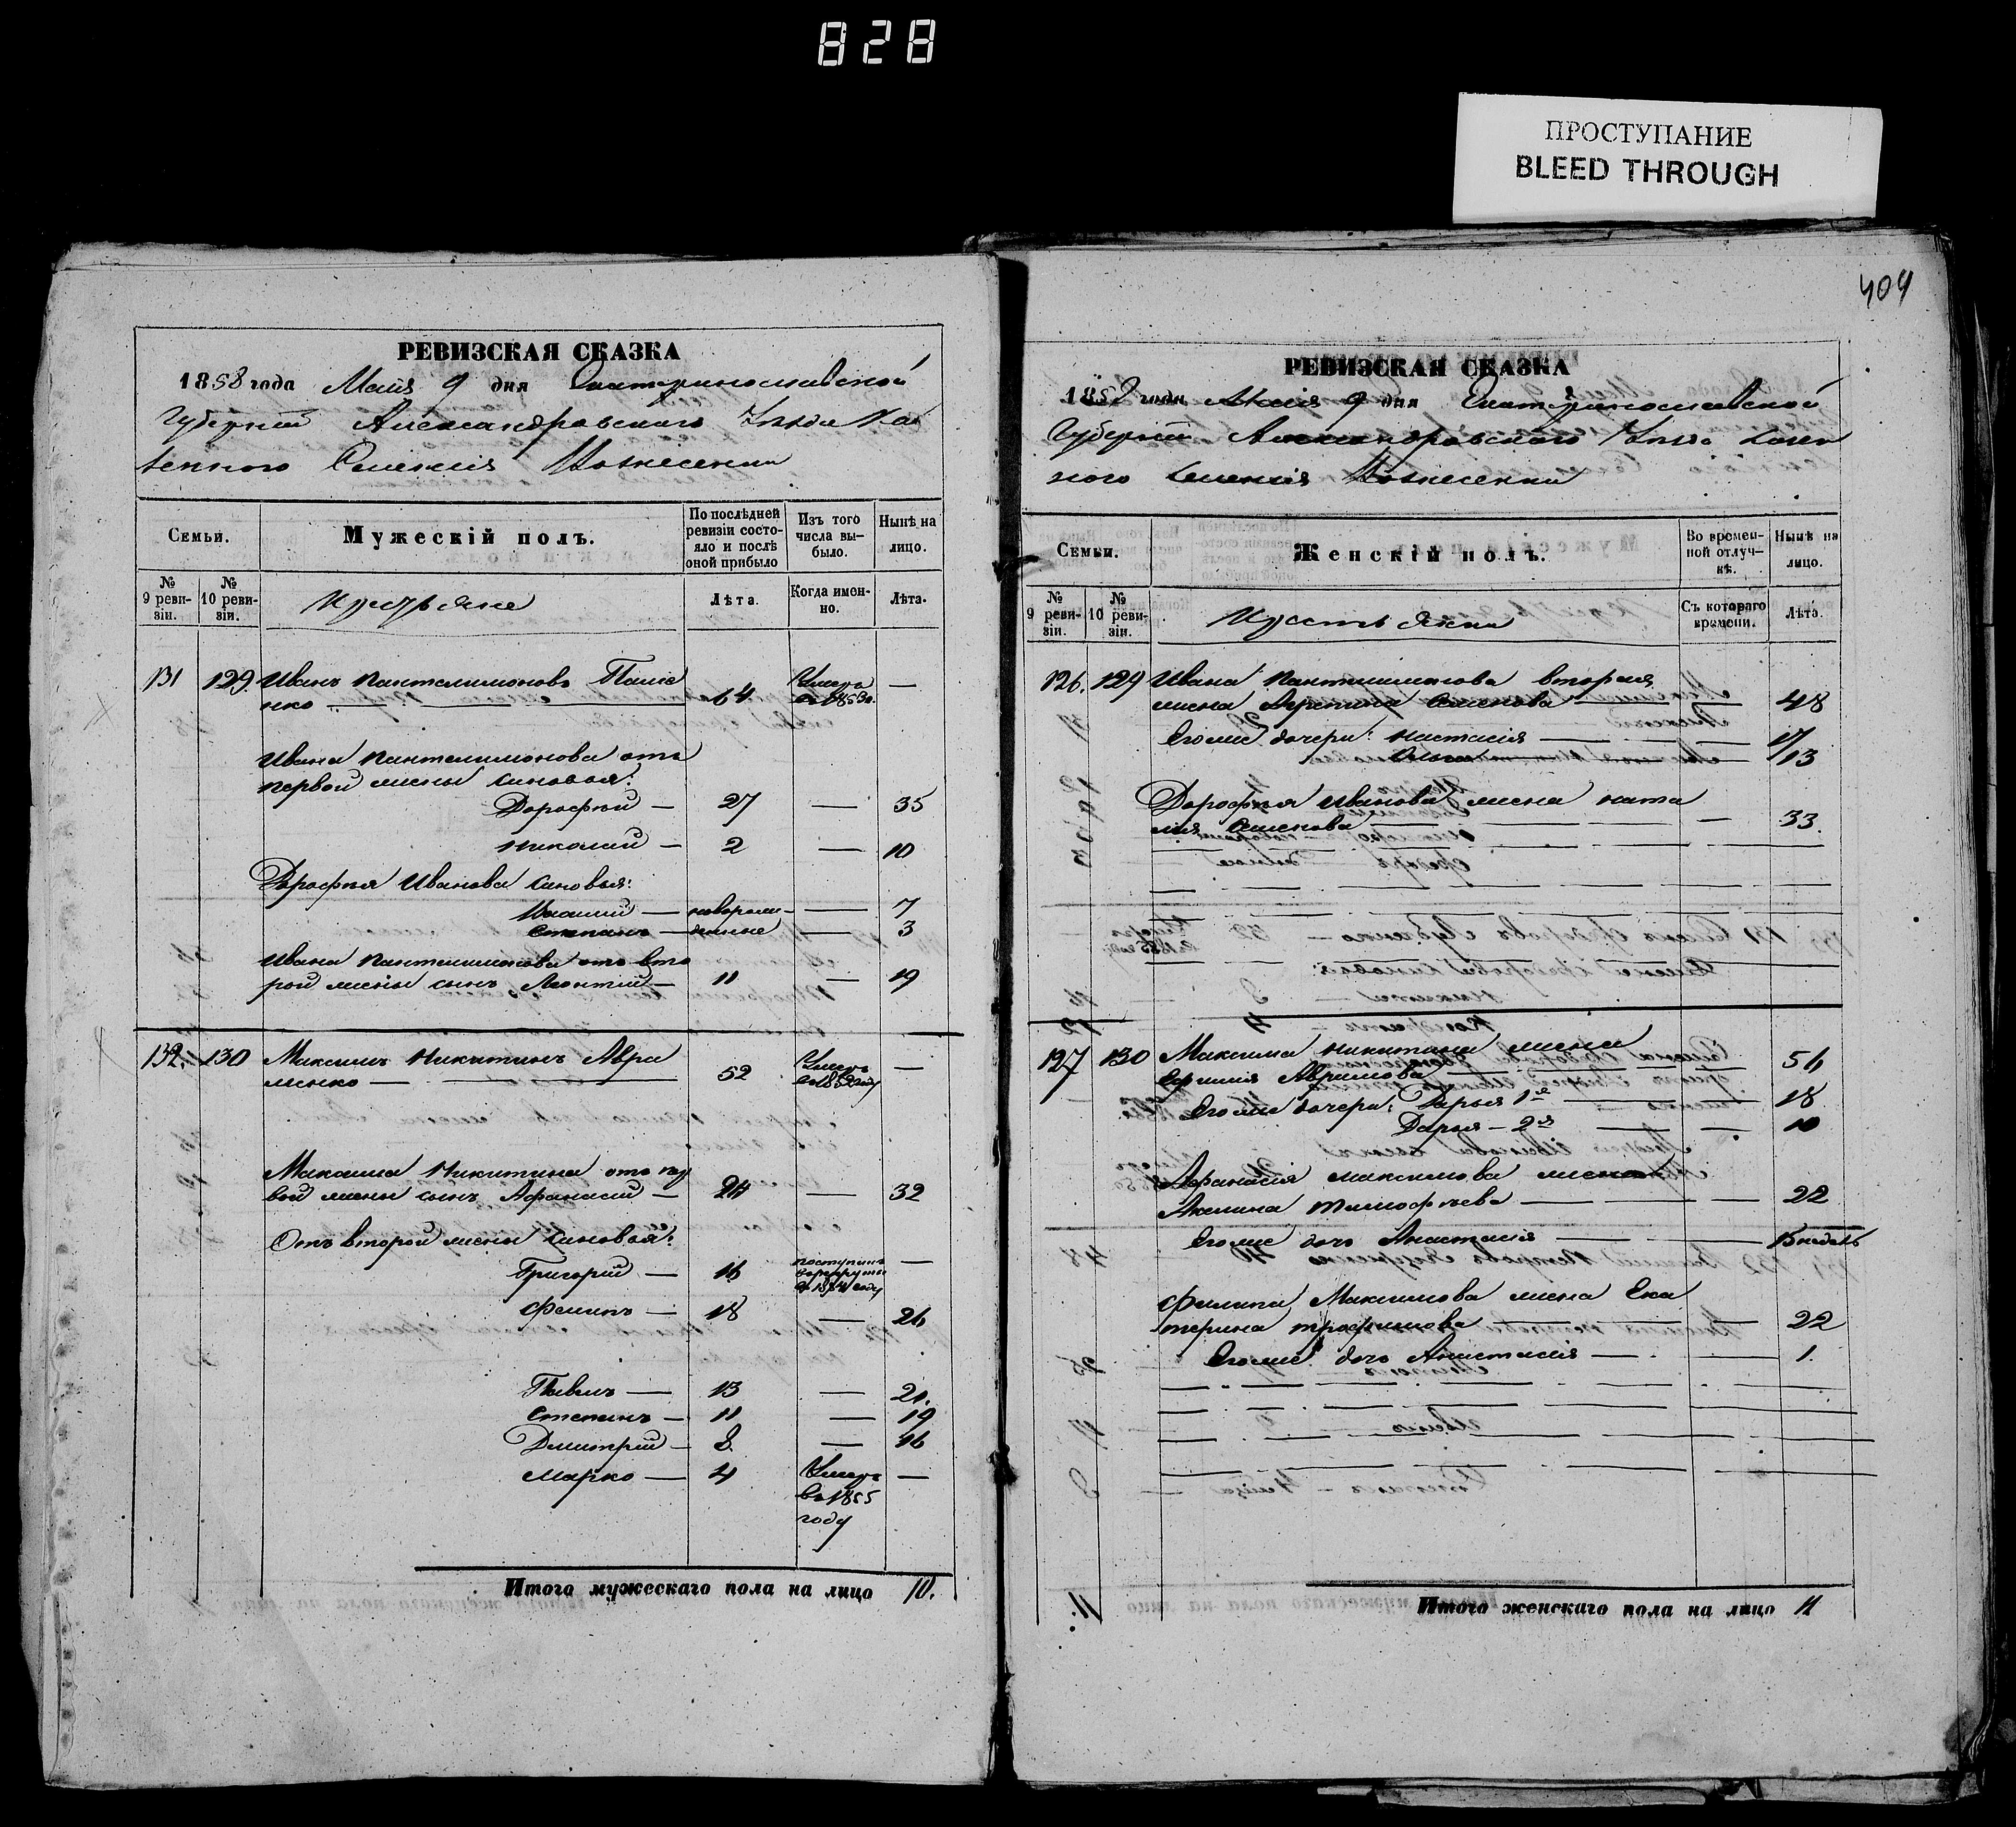 828
ПРОСТУПАНИЕ
BLEED THROUGH
404
РЕВИЗСКАЯ СКАЗКА
1858 года Мая 9 дня Екатеринославской
Губерніи Александровскаго Уѣзда Ка
зеннаго Селенія Вознесенки
Семьи.
Мужескій полъ.
По послѣдней ревизіи состояло и послѣ оной прибыло
Изъ того числа выбыло.
Нынѣ на лицо.
№ 9 ревизіи.
№ 10 ревизіи.
Крестьяне
Лѣта.
Когда именно.
Лѣта.
131 129. Иванъ Пантелимоновъ
нко — 64 Умеръ въ 185 —
Ивана Пантелимонова отъ
первой жены сыновья:
Дорофѣй — 27 — 35
Николай — 2 — 10
Дорофѣя Иванова сыновья:
— новорож- — 7
Степанъ — денные — 3
Ивана Пантелимонова отъ вто
рой жены сынъ Леонтій — 11 — 19
132. 130 Максимъ Никитинъ Авра
менко — 52 Умеръ въ 1852 году —
Максима Никитина отъ пер
вой жены сынъ Афанасій — 24 — 32
Отъ второй жены сыновья:
Григорій — 16 поступилъ въ рекруты въ 1854 году —
Филипъ — 18 — 26
Павелъ — 13 — 21.
Степанъ — 11 — 19
Дмитрій — 8 — 16
Марко — 4 Умеръ —
въ 1855
году
Итого мужескаго пола на лицо 10.
РЕВИЗСКАЯ СКАЗКА
1858 года Мая 9 дня Екатеринославской
Губерніи Александровскаго Уѣзда Казен
ного Селенія Вознесенки
Семьи.
Женскій полъ.
Во временной отлучкѣ.
Нынѣ на лицо.
№ 9 ревизіи.
№ 10 ревизіи.
Крестьянки
Съ котораго времени.
Лѣта.
126. 129 Ивана Пантелимонова вторая
жена Агрипина Семенова — 48
Его же дочери: Настасія — — 17
— 13
Дорофѣя Иванова жена Ната
лія Семенова — — 33.
127 130 Максима Никитина жена
Ефимія — 56
Его же дочери: Дарья 1я — 18
Дарья — 2я — — 10
Афанасія Максимова жена
Акилина Тимофѣева — — 22
Его же дочь Анастасія — — 15 недель
Филипа Максимова жена Ека
терина Трофимова — — 22
Его же дочь Анастасія — — 1.
Итого женскаго пола на лицо 11